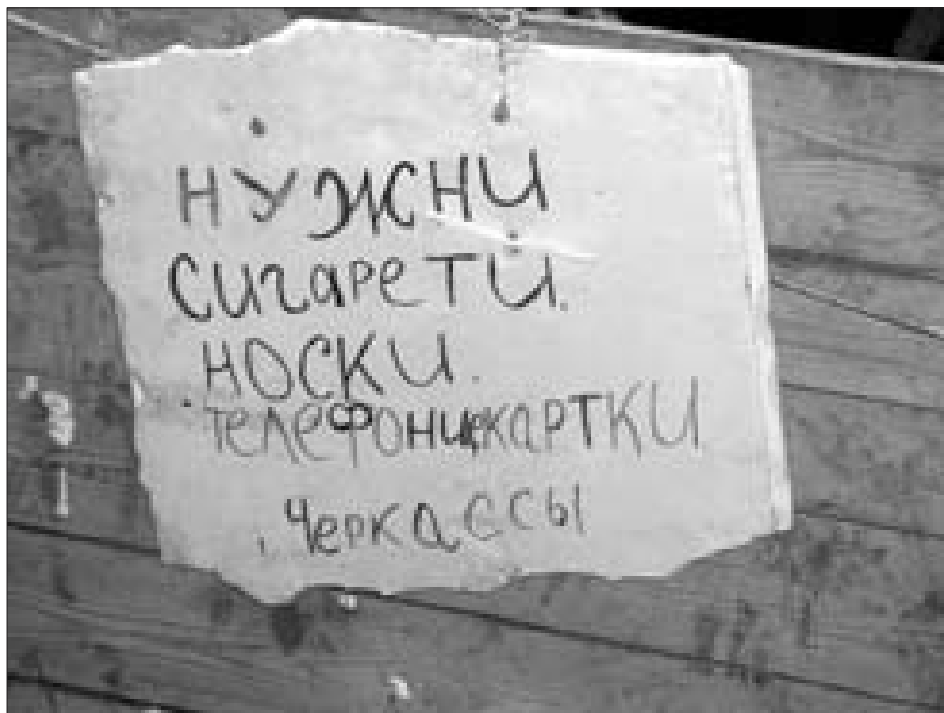 НУЖНИ
СИГАРЕТИ.
НОСКИ.
ТЕЛЕФОНИ КАРТКИ
ЧЕРКАССЫ